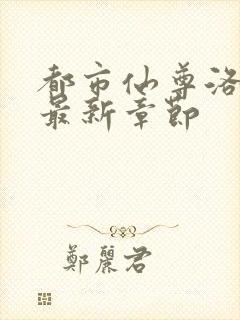 都市仙尊洛
最新章節
鄭麗君